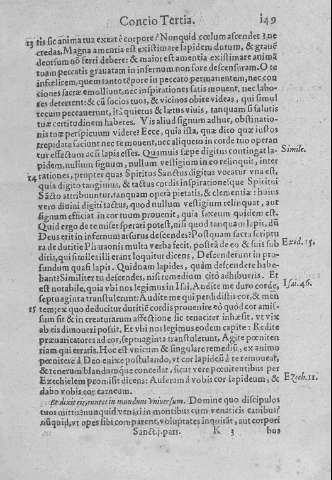 Concio Tertia. 149
13 tis sic anima tua exeat è corpore? Nonquid cœlum ascendet? ne
credas. Magna amentia est existimare lapidem durum, & grauē
deorsum nō ferri debere: & maior est amentia existimare animā
tuam peccatis grauatam in infernum non fore descensuram. O te
infœlicem, quem tanto tēpore in peccato permanentem, nec con
siones sacræ emolliunt, nec inspirationes satis mouent, nec labo-
res deterrent: & cū socios tuos, & vicinos obire videas, qui simul
tecum peccauerunt, itā quietus & lætus viuis, tanquam si salutis
tuæ certitudinem haberes. Vis aliud signum adhuc, obstinatio-
nis tuæ perspicuum videre? Ecce, quia ista, quæ dico quæ iustos
trepidare faciunt nec te mouent, nec aliquem in corde tuo operan
tur effectum ac si lapis esses. Qui muis sæpe digitus contingat la-
pidem, nullum signum, nullum vestigium in eo relinquit, inter
14 rationes, propter quas Spiritus Sanctus digitus vocatur vna est,
quia digito tangimus, & tactus cordis inspirationéque Spiritui
Sācto attribuuntur, tanquam opera pietatis, & clementiæ: huius
verò diuini digiti tactus, quod nullum vestigium relinquat, aut
signum efficiat in cor tuum prouenit, quia saxeum quidem est.
Quid ergo de te miser sperari potest, nisi quod tanquam lapis, dū
Deus erit in infernum asursu descendes? Postquam sacra scriptu
ra de duritie Pharaonis multa verba fecit, posteà de eo & suis sub
ditis, qui similes illi erant loquitur dicens, Descenderunt in pro-
fundum quasi lapis. Quidnam lapides, quàm descendere habe-
bant? Similiter tu descendes, nisi remedium citò adhibueris. Et
est notabile, quia vbi nos legimus in Isai. Audite me duro corde,
septuaginta transtulerunt: Audite me qui perdidistis cor, & men
15 tem; ex quo deducitur duritiē cordis prouenire eò quod cor amis-
sum sit & in creaturarum affectione sic tenaciter inhæsit, vt vix
ab eis dimoueri possit. Et vbi nos legimus eodem capite: Redite
præuaricatores ad cor, septuaginta transtulerunt, Agite pœniten
tiam qui erratis. Hoc est vnicum & singulare remediū, ex animo
pœnitere à Deo enixe postulando, vt cor lapideū à te remoueat,
& tenerum blandumque concedat, sicut vere pœnitentibus per
Ezechielem promisit dicens: Auferam à vobis cor lapideum, &
dabo vobis cor carneum.
Et dixit eis, euntes in mundum Vniuersum. Domine quo discipulos
tuos mittis? nunquid venari in montibus cum venaticis canibus?
nūquid, vt opes sibi comparent, voluptates inquirāt, aut corpori
Sanct. j. pars. K 3 bus
Simile.
Exod. 15.
Isai. 46.
Ezech. 11.